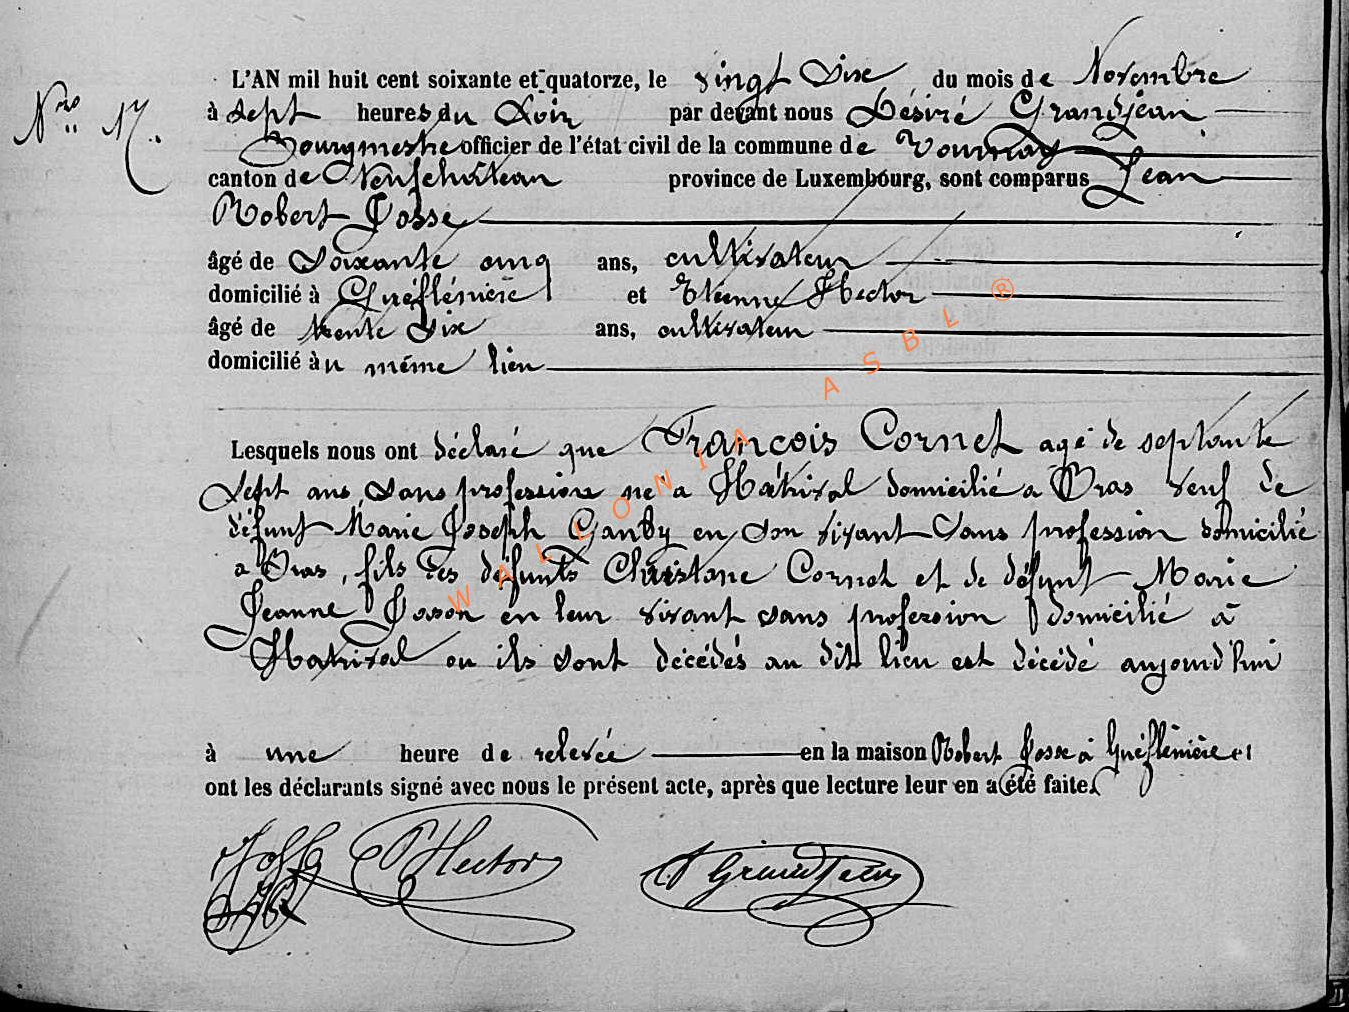 Nro 17.
L'AN mil huit cent soixante et quatorze, le vingt Six du mois de Novembre
à Sept heures du Soir par devant nous Désiré Grandjean
Bourgmestre officier de l'état civil de la commune de Tournay
canton de Neufchâteau province de Luxembourg, sont comparus Jean
Robert Josse
âgé de Soixante cinq ans, cultivateur
domicilié à et Etienne Hector
âgé de trente Six ans, cultivateur
domicilié àu même lien
Lesquels nous ont déclaré que François Cornet agé de septante
Sept ans, Sans profession né a Hatrival domicilié a Bras veuf de
défunt Marie Joseph en Son vivant Sans profession domicilié
a Bras, fils des défunts Cornet et de défunt Marie
Jeanne Joson en leur vivant sans profession domicilié à
Hatrival ou ils sont décédés au dit lieu est décédé aujourd'hui
à une heure de relevée en la maison Robert Josse à et
ont les déclarants signé avec nous le présent acte, après que lecture leur en a été faite.
Hector
D Grandjean
WALLONIA ASBL ®